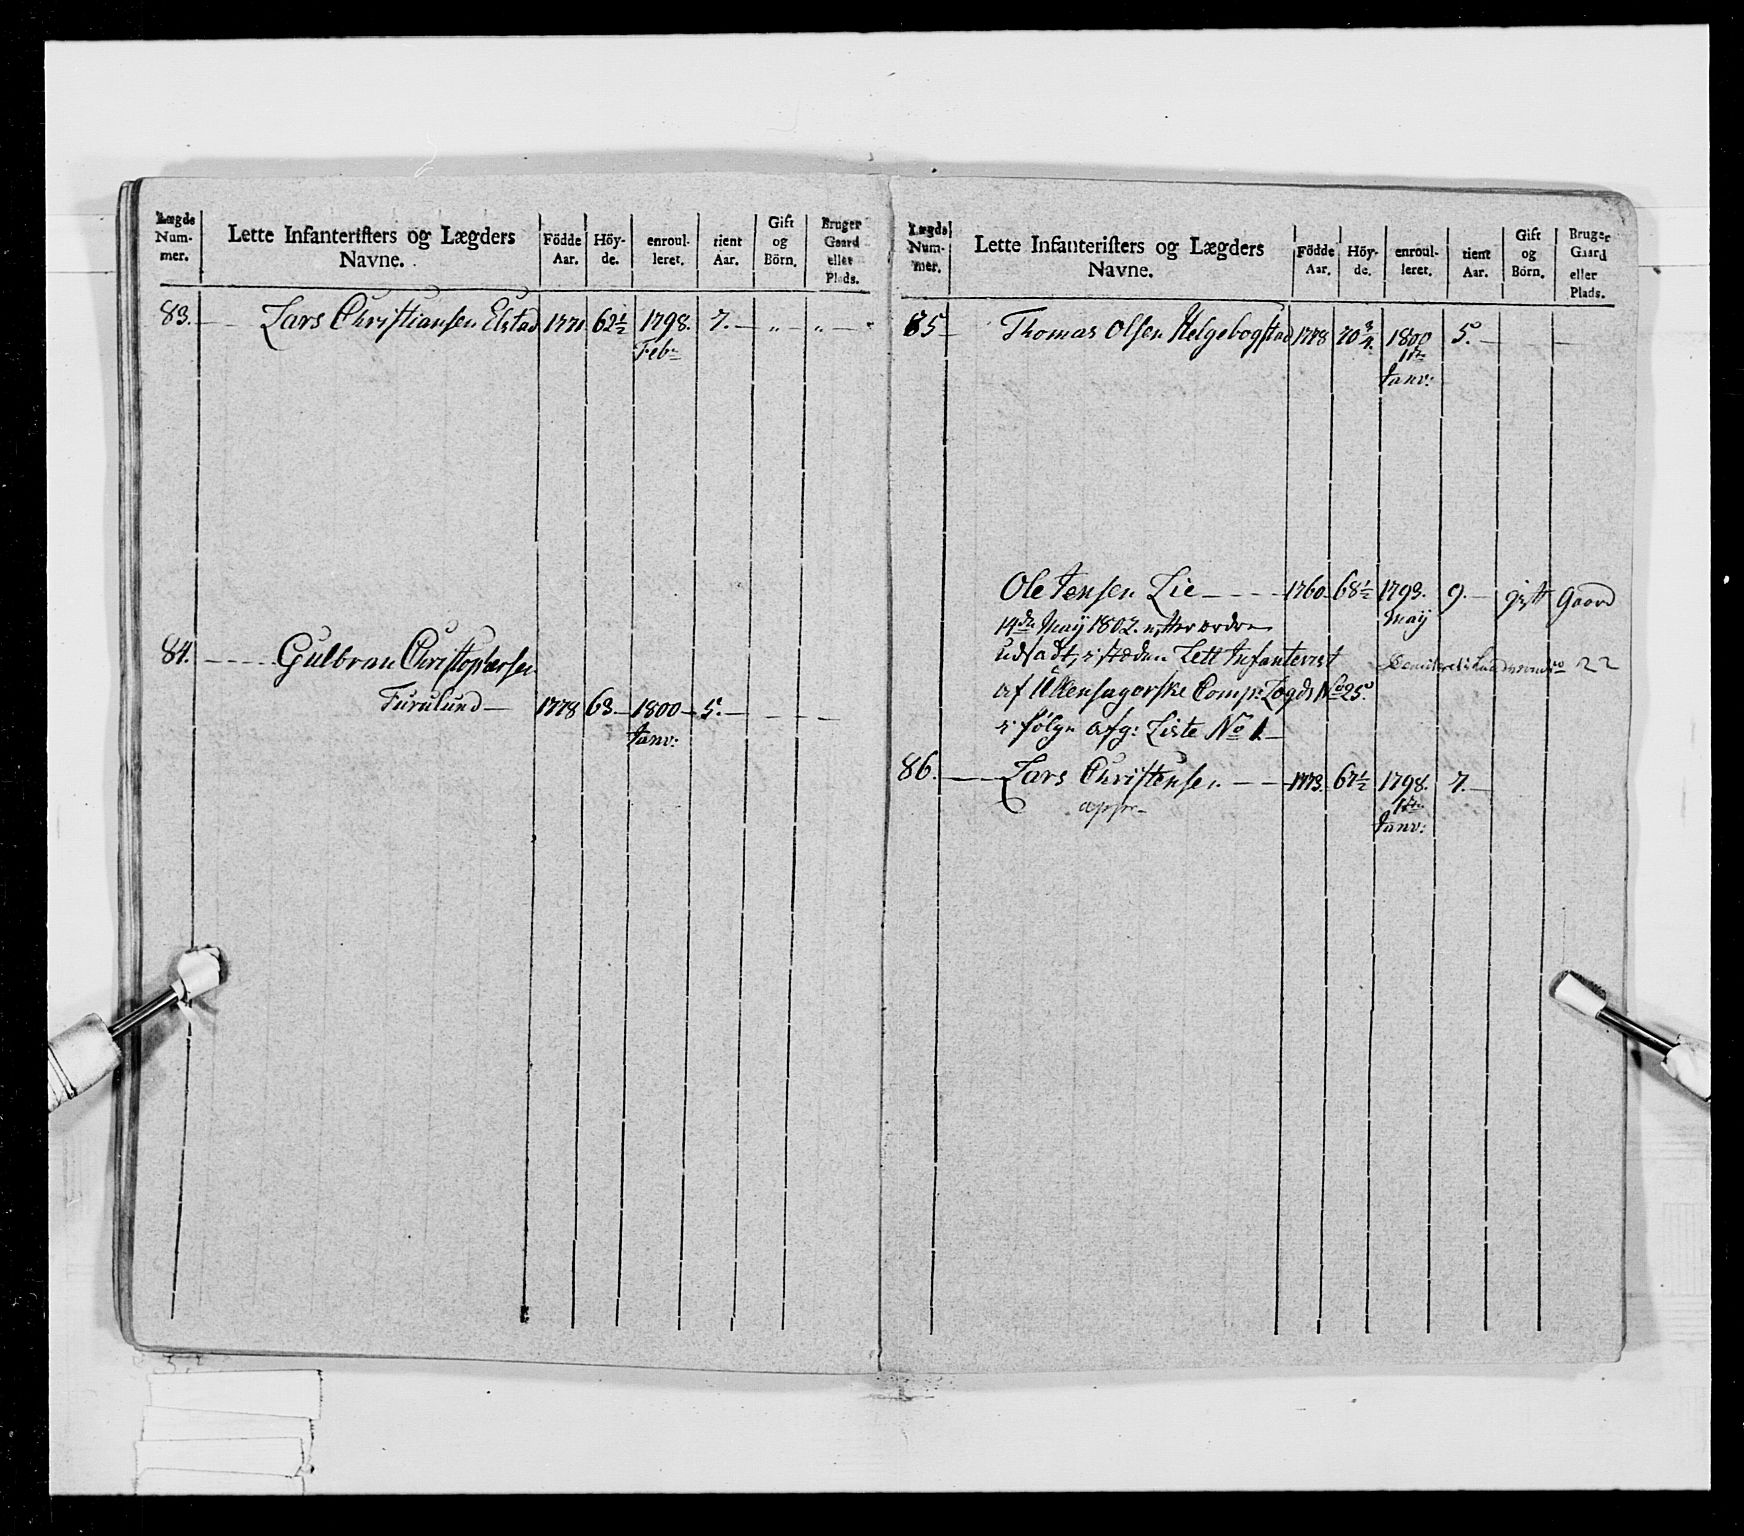 Lægds Num- mer.
Lette Infanteristers og Lægders Navne.
Födde Aar.
Höy- de.
enroul- leret.
tient Aar.
Gift og Börn.
Bruger Gaard eller Plads.
83. Lars Christiansen Elstad 1771 62½ 1798. 7. — „ — „ —
Febr
84. Gulbran Christophersen
Furulund — 1778 63. — 1800 — 5. —
Janv:
Lægds Num- mer.
Lette Infanteristers og Lægders Navne.
Födde Aar.
Höy- de.
enroul- leret.
tient Aar.
Gift og Börn.
Bruger Gaard eller Plads.
85 — Thomas Olsen Helgebogstad 1778 70¾ 1800 5. —
1te
Janv:
Ole Jensen Lie — 1760 68½ 1793. 9. — gift Gaard
14de Maÿ 1802 efter ordre Maÿ
udsadt, i stæden Lett Infanterist 22
af Ullensagerske Comp: Legd No 25
i følge afg: Liste No 1. —
86. — Lars Christensen — 1773. 67½ 1798. 7. —
1te
app— Janv: